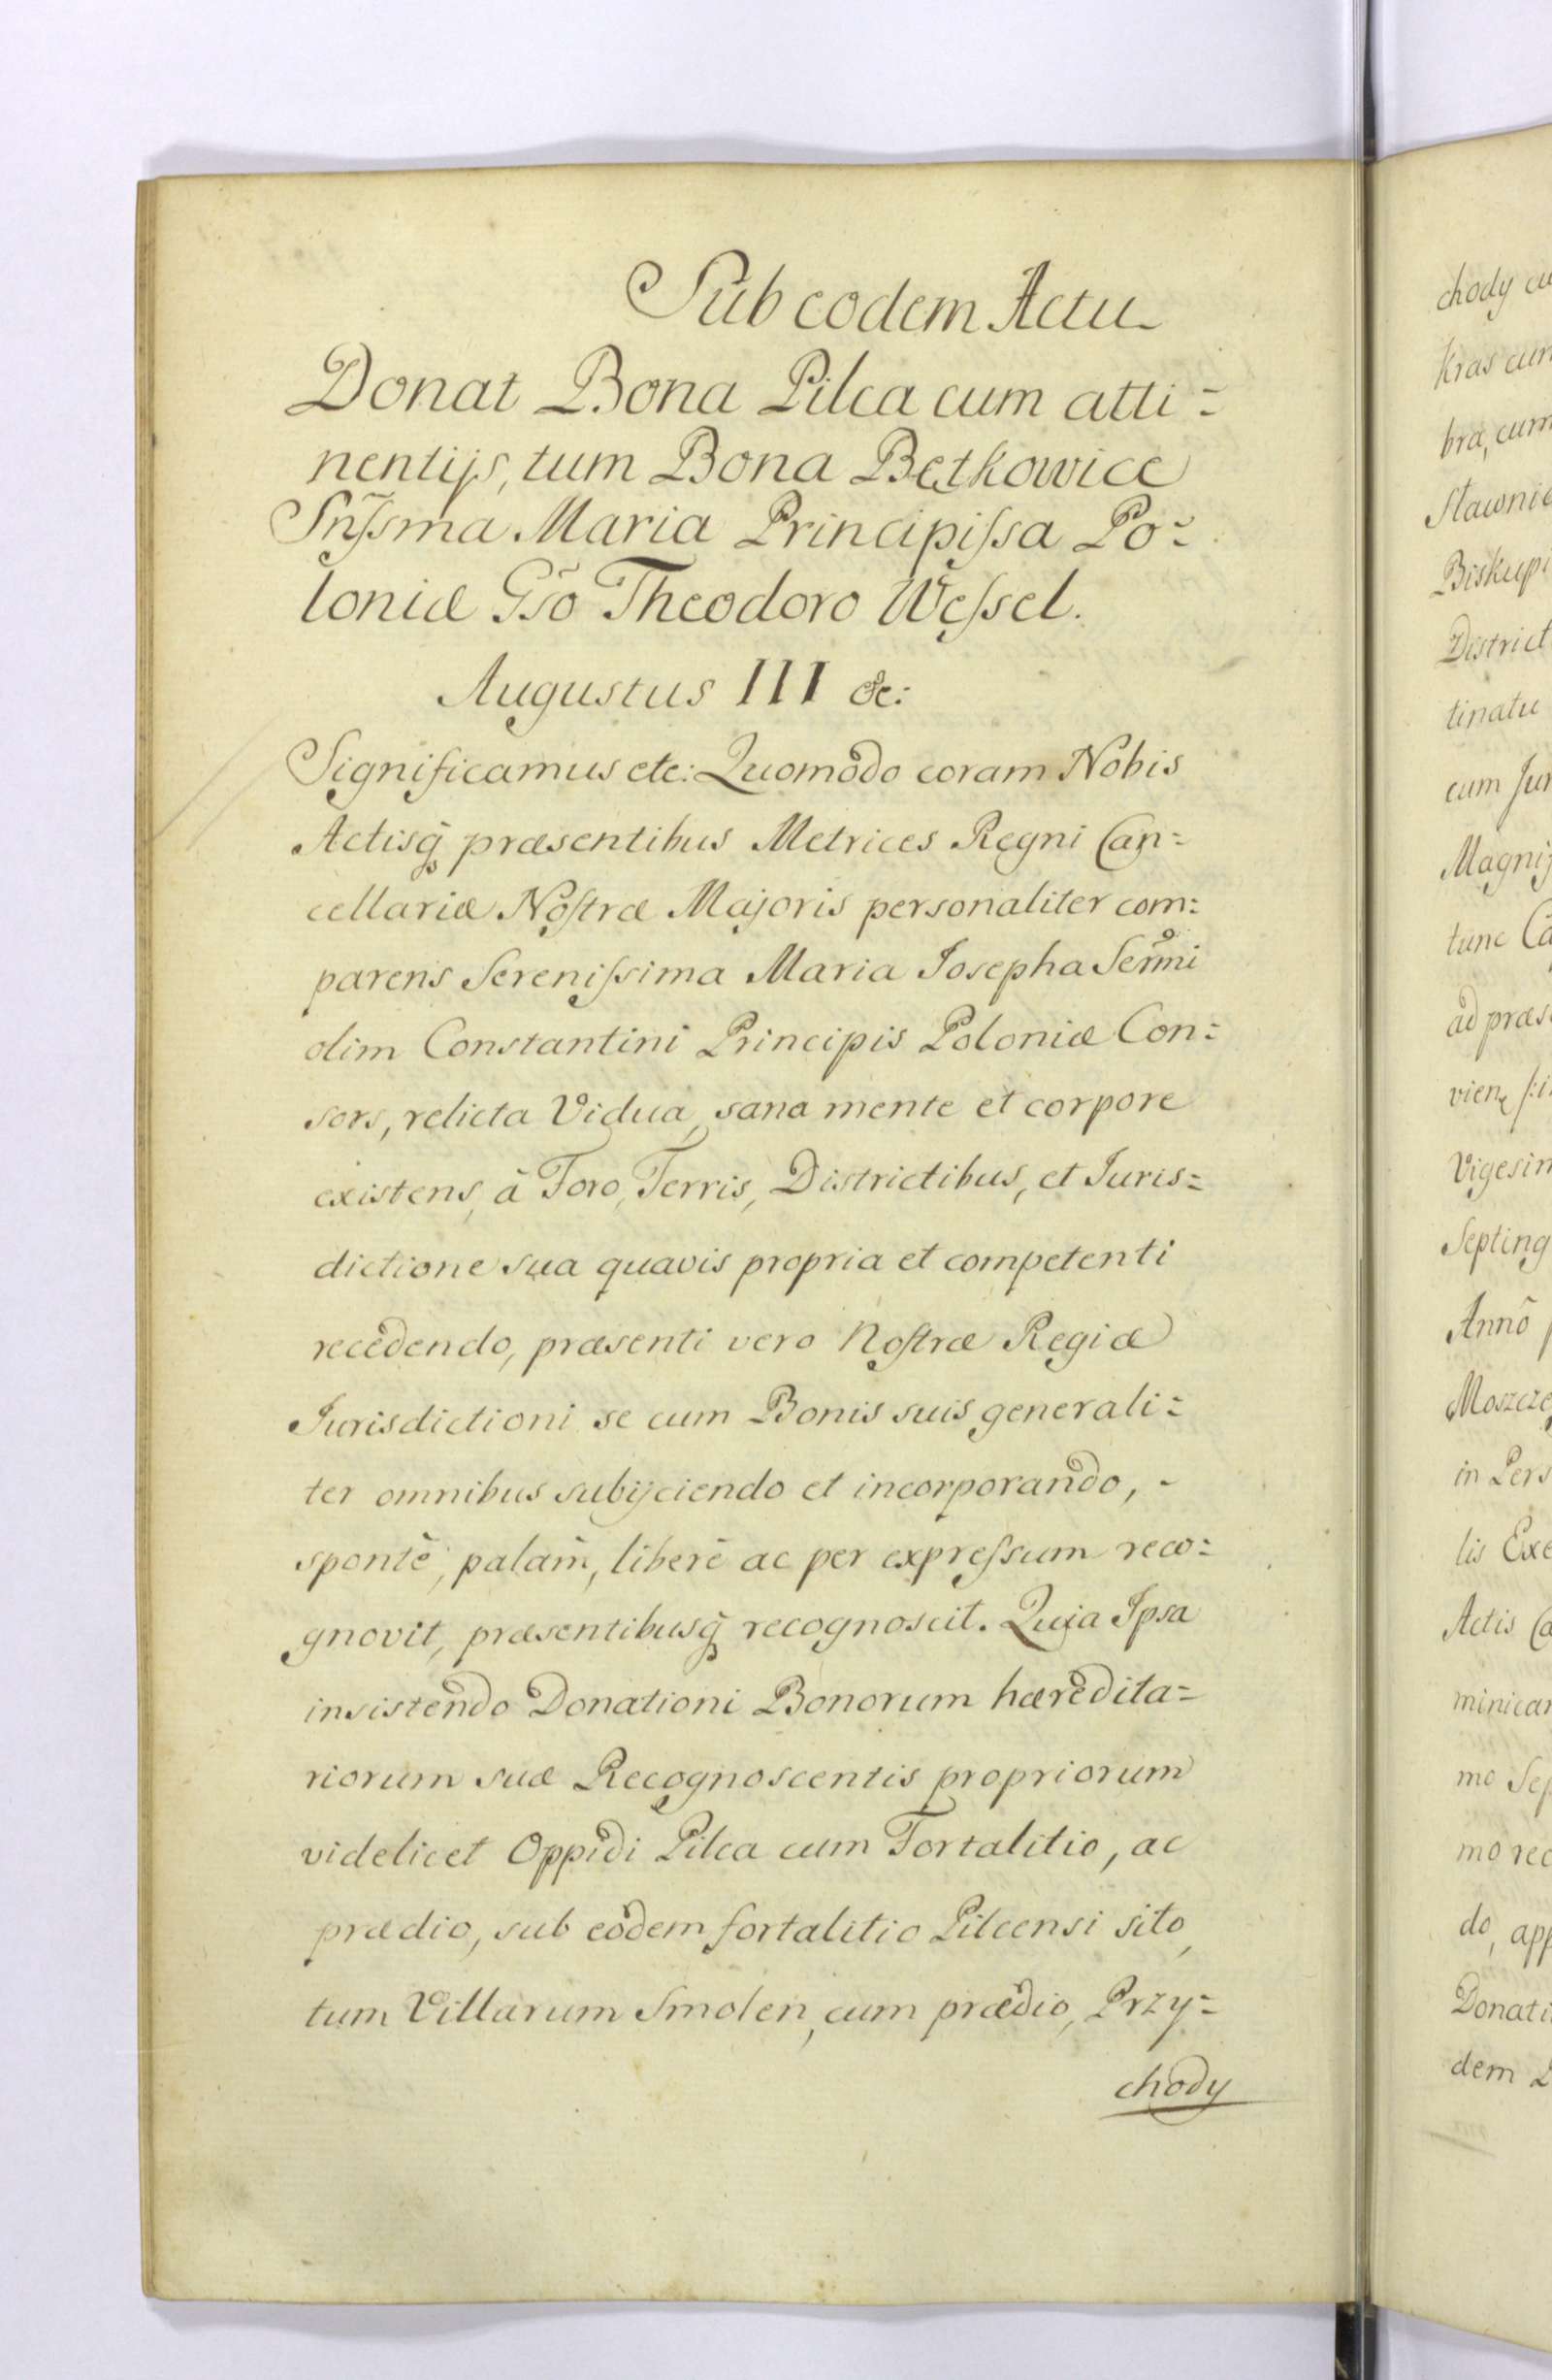 Sub eodem Actu
Donat Bona Pilca cum atti=
nentijs, tum Bona Bętkowice
Snſsma Maria Principiſsa Po=
loniæ Gso Theodoro Weſsel.
Augustus III &c:
Significamus etc: Quomodo coram Nobis
Actisq̃ præsentibus Metrices Regni Can=
cellariæ Noſtræ Majoris personaliter com=
parens Sereniſsima Maria Josepha Sermi
olim Constantini Principis Poloniæ Con=
sors, relicta Vidua, sana mente et corpore
existens, à Foro, Terris, Districtibus, et Juris=
dictione sua quavis propria et competenti
recedendo, præsenti vero Noſtræ Regiæ
Jurisdictioni se cum Bonis suis generali=
ter omnibus subijciendo et incorporando, -
spontè, palam, liberè ac per expreſsum reco=
gnovit, præsentibusq̃ recognoscit. Quia Ipsa
insistendo Donationi Bonorum hæredita=
riorum suæ Recognoscentis propriorum
videlicet Oppidi Pilca cum Fortalitio, ac
prædio, sub eodem fortalitio Pilcensi sito,
tum Villarum Smolen, cum prædio, Przy=
chody
chody
Kras cum
bra, cum
Sławnie
Biskupi
District
tinatu
cum
Magni
tunc
ad præs
Septing
Annô
in Pers
lis Exe
Actis
minican
mo Sep
mo rec
do, app
Donati
dem